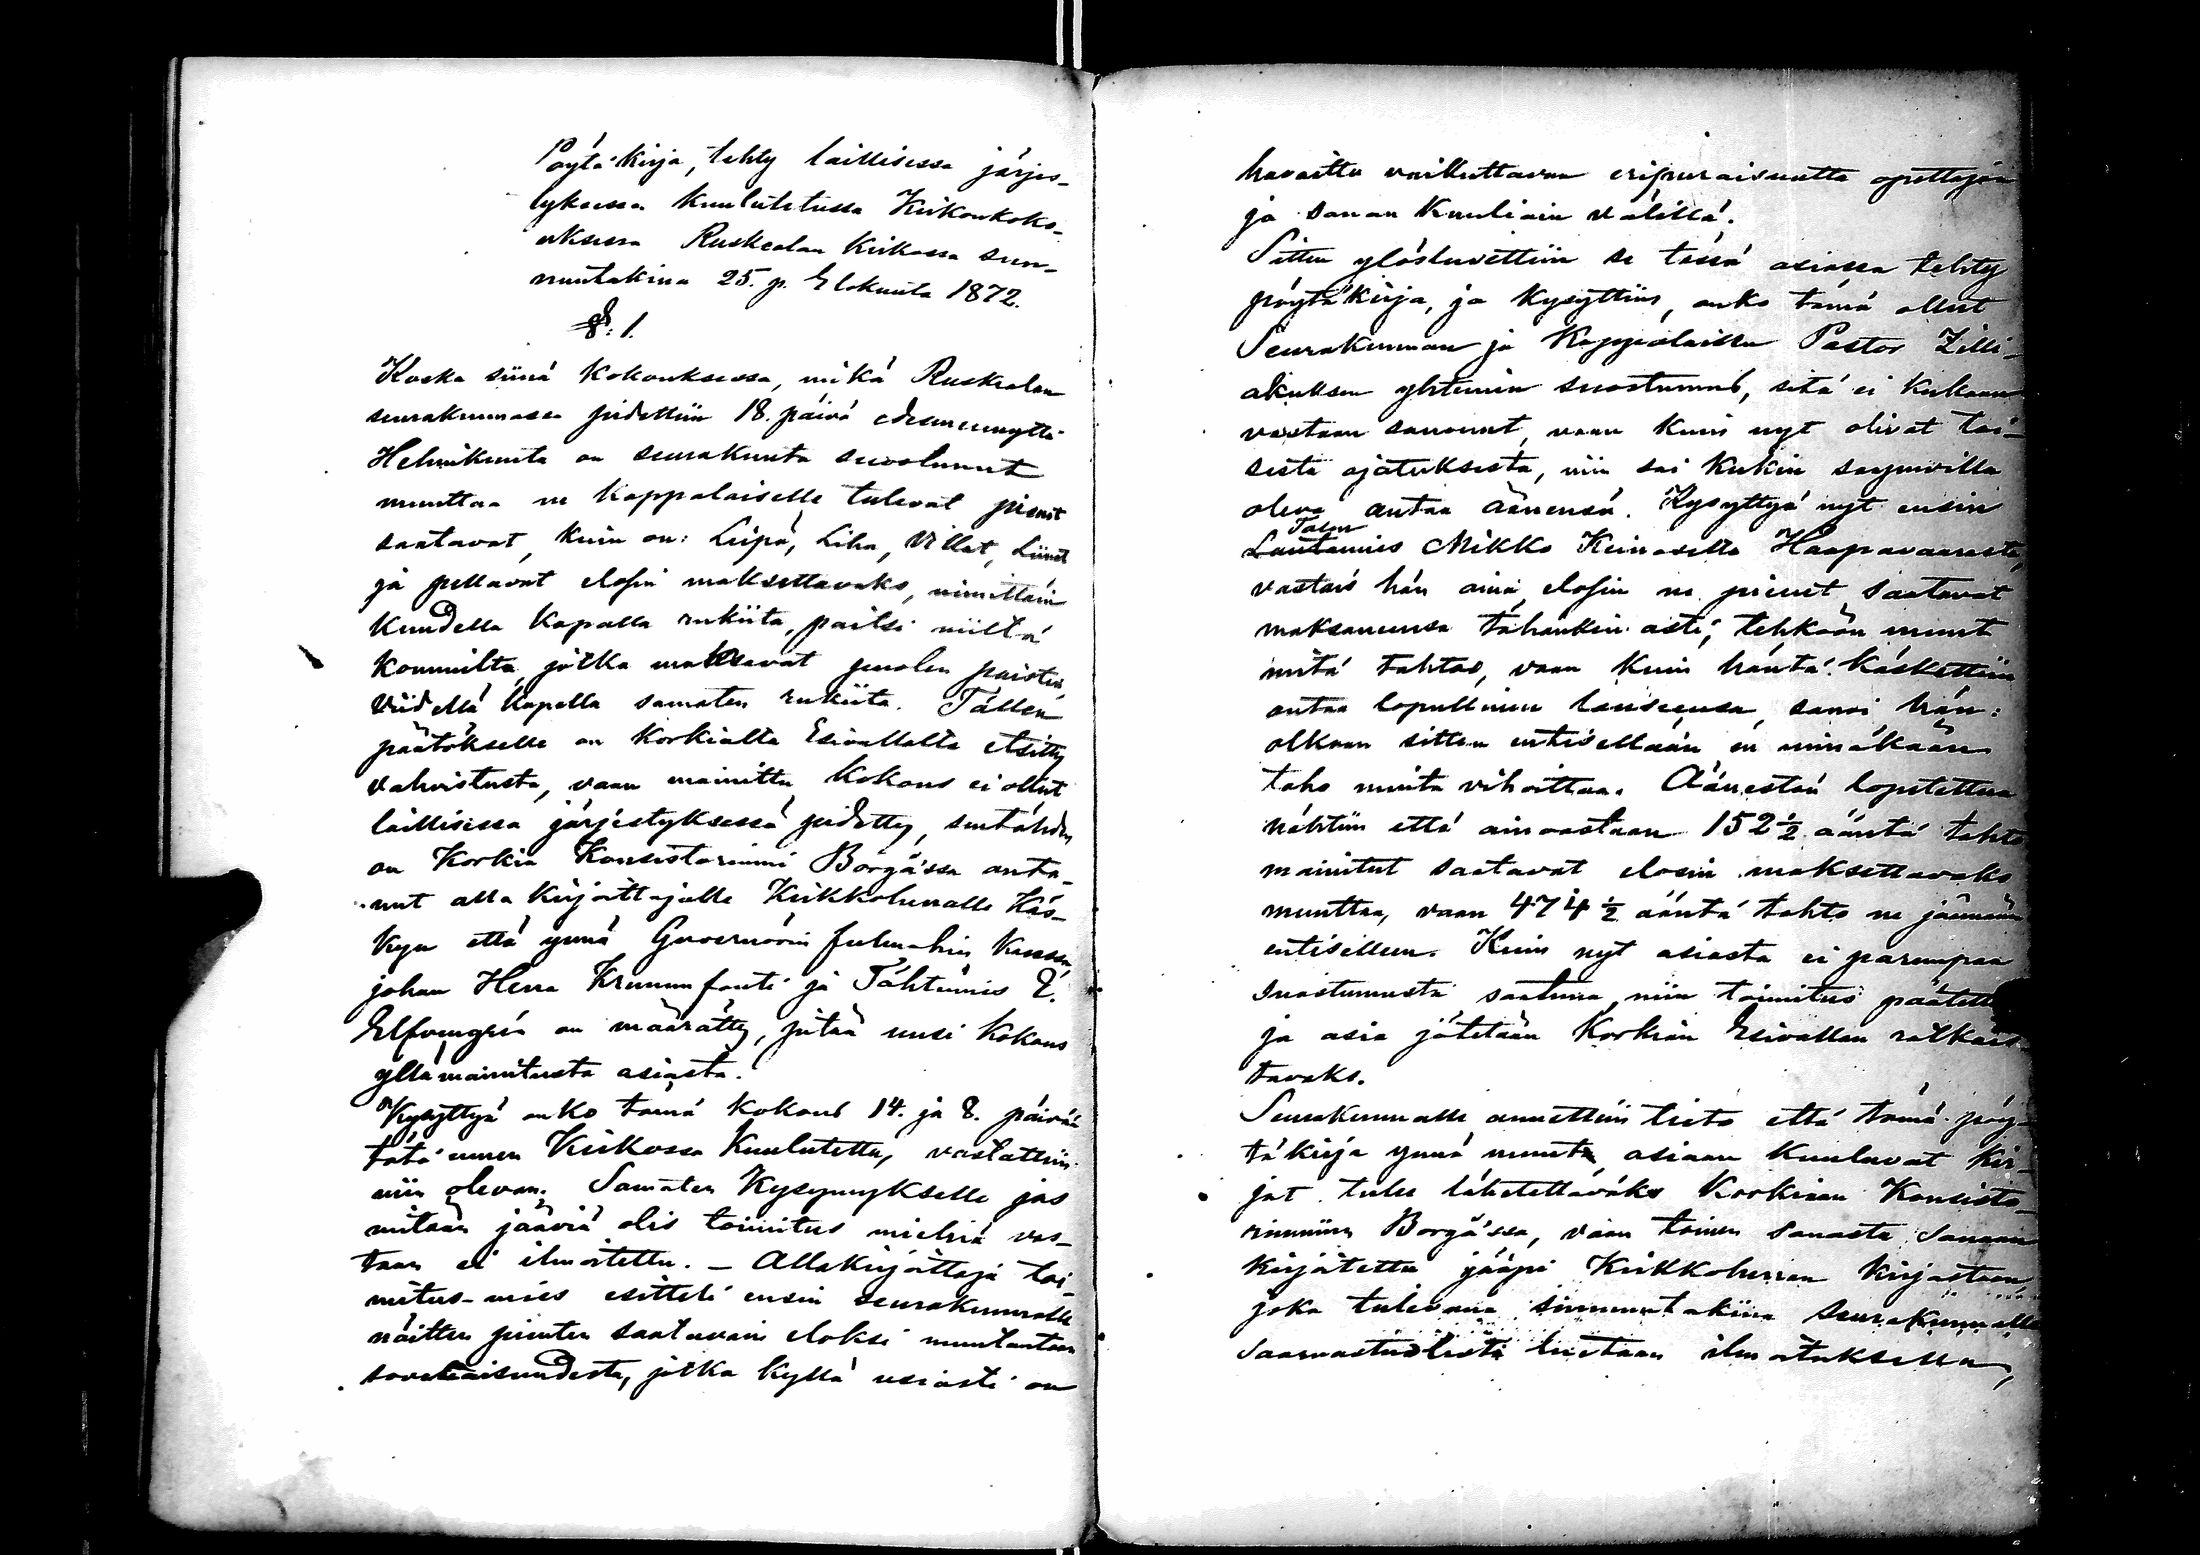 Pöytäkirja, tehty laillisessa järjes-
tyksessä kuulutetussa Kirkonkoko-
uksessa Ruskealan Kirkossa sun-
nuntakina 25. p. Elokuuta 1872.
§: 1.
Koska siinä kokouksessa, mikä Ruskealan
seurakunnassa pidettiin 18. päivä edesmennyttä
Helmikuuta on seurakunta suostunut
muuttaa ne kappalaiselle tulevat pienet
saatavat, kuin on: Leipä, Liha, Villat, Liinat
ja pellavat elosin maksettavaks, nimittäin
kuudella kapalla rukiita, paitsi niiltä
kommilta, jotka maksavat puolen paisten,
viidellä kapalla samaten rukiita. Tällen
päätökselle on Korkialta Esivallalta etsitty
vahvistusta, vaan mainittu kokous ei ollut
laillisessa järjestyksessä pidetty, sentähden
on Korkia Konsistoriumi Borgå'ssa anta-
nut alla kirjoittajalle Kirkkoherralle Käs-
kyn että ynnä Guvernöörin kanssa
johan Herra Kruununfouti ja Tähtimies E.
Elfvengrén on määrätty, pitää uusi kokous
yllämainitusta asiasta.
Kysyttyä onko tämä kokous 14. ja 8. päivää
tätä ennen Kirkossa kuulutettu, vastattiin
niin olevan. Samaten kysymykselle jos
mitään jääviä olis toimitus miehiä vas-
taan ei ilmoitettu. - Allakirjoittaja toi-
mitus-mies esitteli ensin seurakunnalle
näitten pienten saatavain eloksi muuntantoon
soveliaisuudesta, jotka kyllä usiasti on
havaittu vaikuttavan eripuraisuutta opettajan
ja sanan kuuliain välillä.
Sitten ylösluvettiin se tässä asiassa tehty
pöytäkirja, ja kysyttiin, onko tämä ollut
Seurakunnan ja Kappalaisen Pastor Zilli-
akuksen yhteinen suostumus, sitä ei kukaan
vastaan sanonut, vaan kuin nyt olivat toi-
sesta ajatuksesta, niin sai kukin saapuvilla
oleva antaa äänensä. Kysyttyä nyt ensin
Talon
Lautamies Mikko Keinoselta Haapavaarasta,
vastais hän aina elosin ne pienet saatavat
maksaneensa tähänkin asti, tehköön muut
mitä tahtoo, vaan kuin häntä käskettiin
antaa lopullinen lauseensa, sanoi hän:
olkoon sitten entisellään en minäkään
taho muita vihoittaa. Äänestön lopetettua
nähtiin että ainoastaan 152 ½ ääntä tahto
mainitut saatavat elosin maksettavaks
muuttaa, vaan 474 ½ ääntä tahto ne jäämään
entiselleen. Kuin nyt asiasta ei parempaa
suostumusta saatunna, niin toimitus päätett
ja asia jätetään Korkian Esivallan ratkais
tavaks.
Seurakunnalle annettiin tieto että tämä pöy-
täkirja ynnä muut asiaan kuuluvat kir-
jat tulee lähetettäväks Korkiaan Konsisto-
riumiin Borgå'ssa, vaan toinen sanasta sanaan
kirjoitettu jääpi Kirkkoherran kirjastoon,
joka tulevana sunnuntakina Seurakunnalle
Saarnastuolista luetaan ilmoituksella,